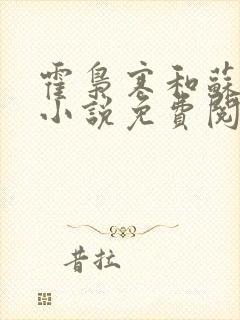 霍梟寒和蘇
小說免費閱
昔拉